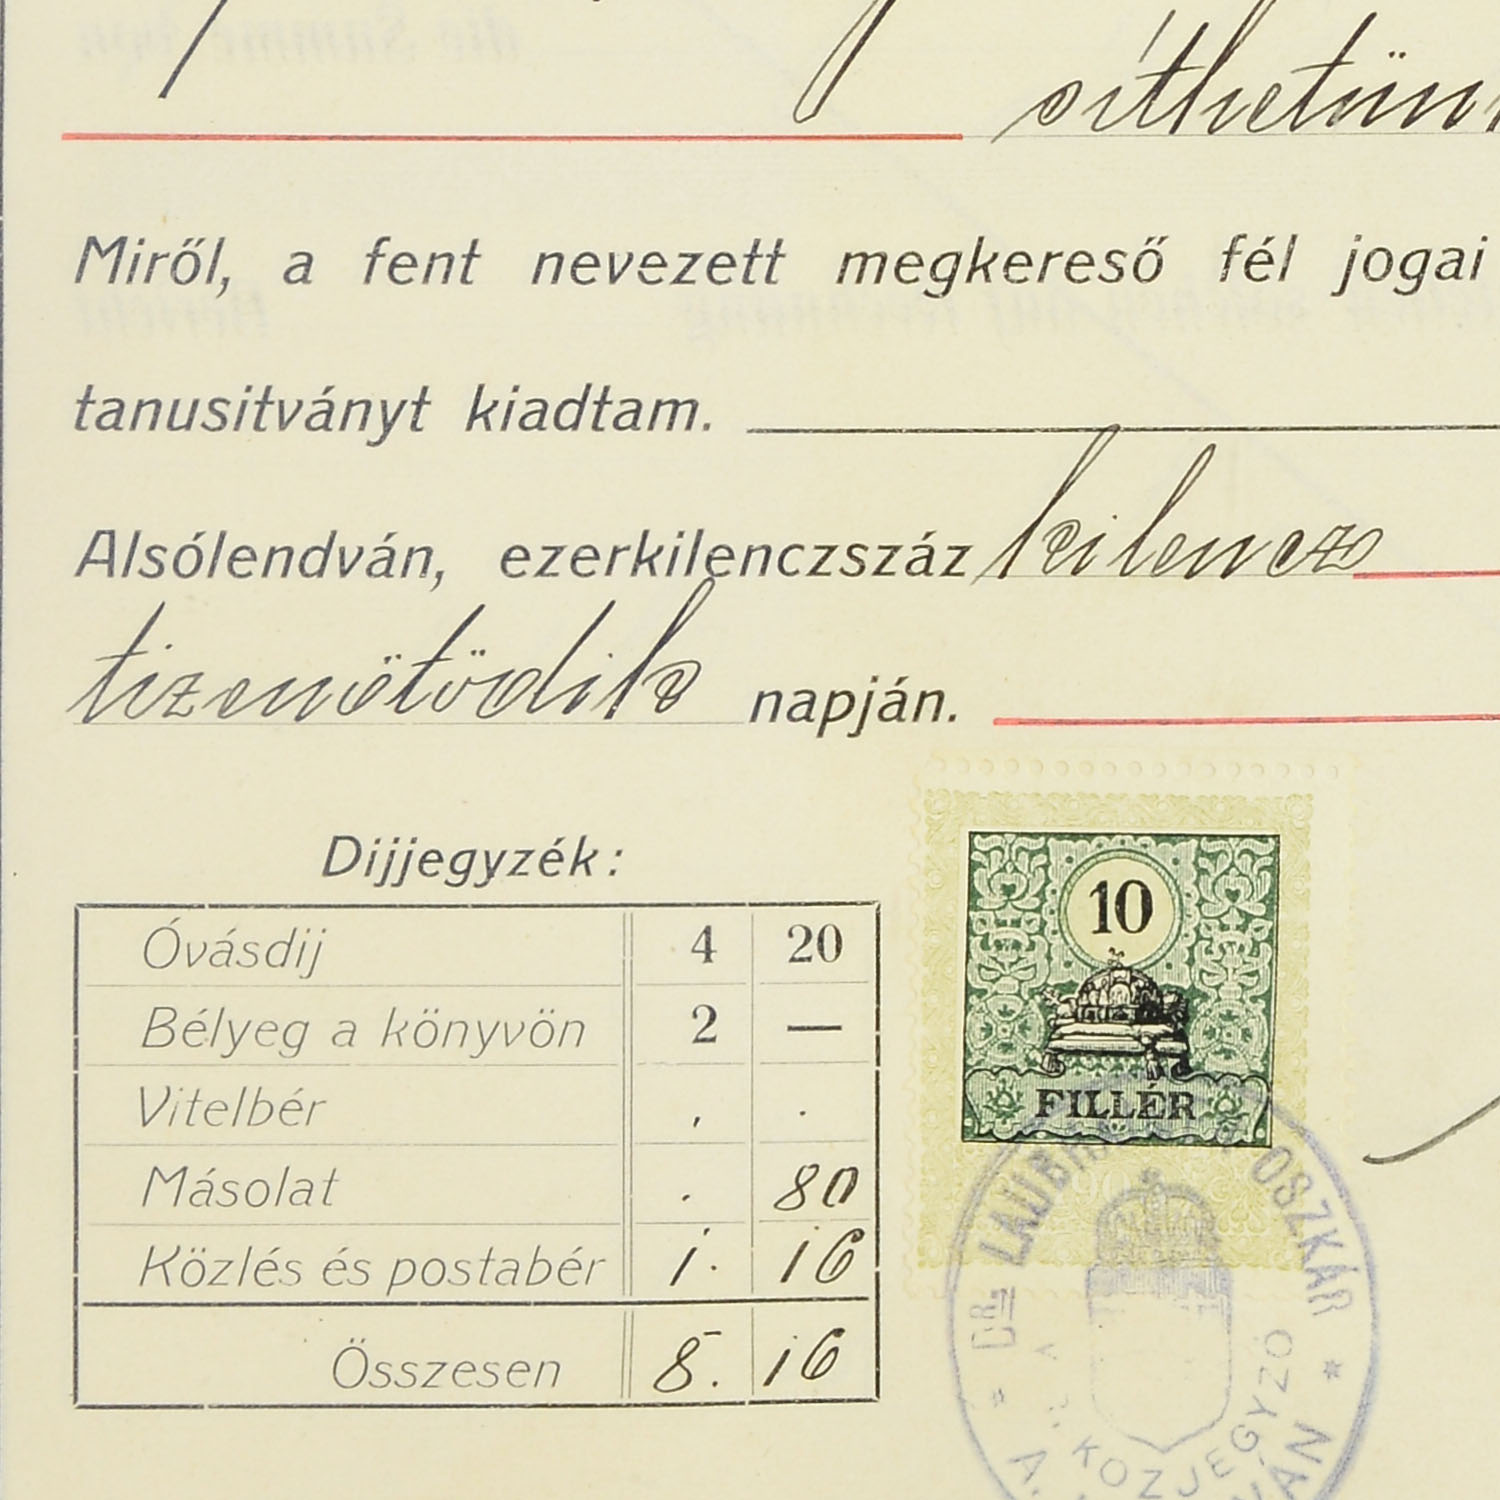 síthetünk
Miről, a fent nevezett megkereső fél jogai
tanusitványt kiadtam.
Alsólendván, ezerkilenczszáz kilencz
tizenötödik napján.
Dijjegyzék:
Óvásdij 4 20
Bélyeg a könyvön 2 —
Vitelbér , .
Másolat . 80
Közlés és postabér 1. 16
Összesen 8. 16
10
FILLÉR
DR OSZKÁR
KÖZJEGYZŐ